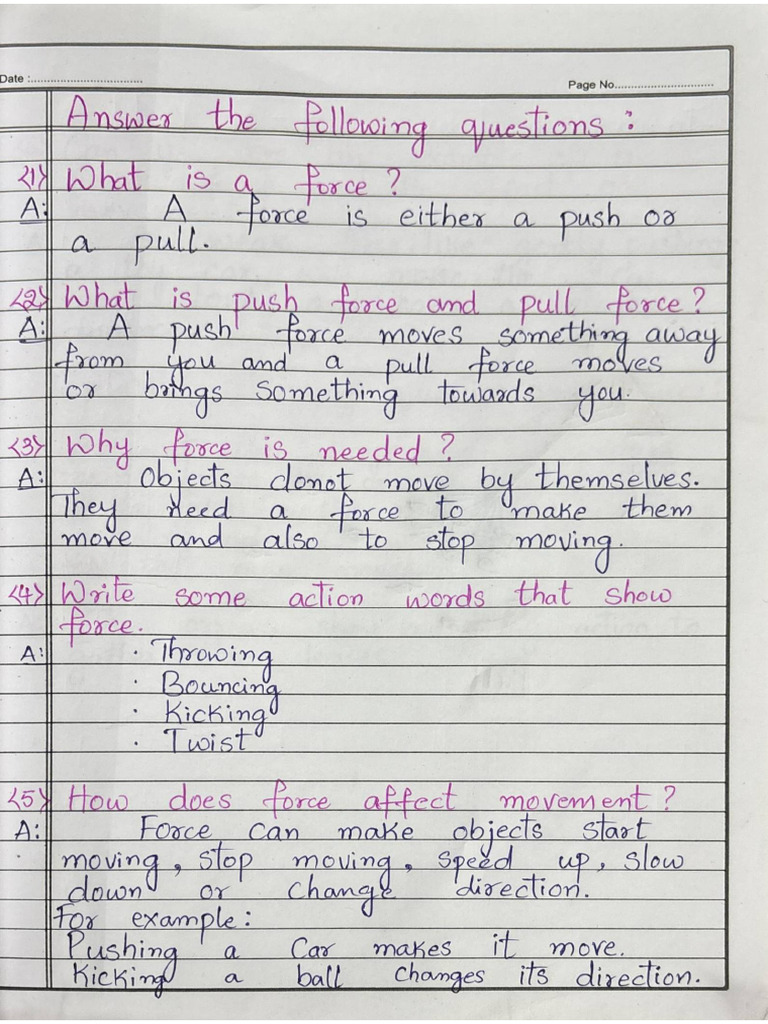 Date :................................
Page No..............................
Answer the following questions :
<1> What is a force ?
A: A force is either a push or
a pull.
<2> What is push force and pull force ?
A: A push force moves something away
from you and a pull force moves
or brings something towards you.
<3> Why force is needed ?
A: Objects donot move by themselves.
They need a force to make them
move and also to stop moving.
<4> Write some action words that show
force.
A: · Throwing
· Bouncing
· Kicking
· Twist
<5> How does force affect movement ?
A: Force can make objects start
moving, stop moving, speed up, slow
down or change direction.
For example :
Pushing a car makes it move.
Kicking a ball changes its direction.